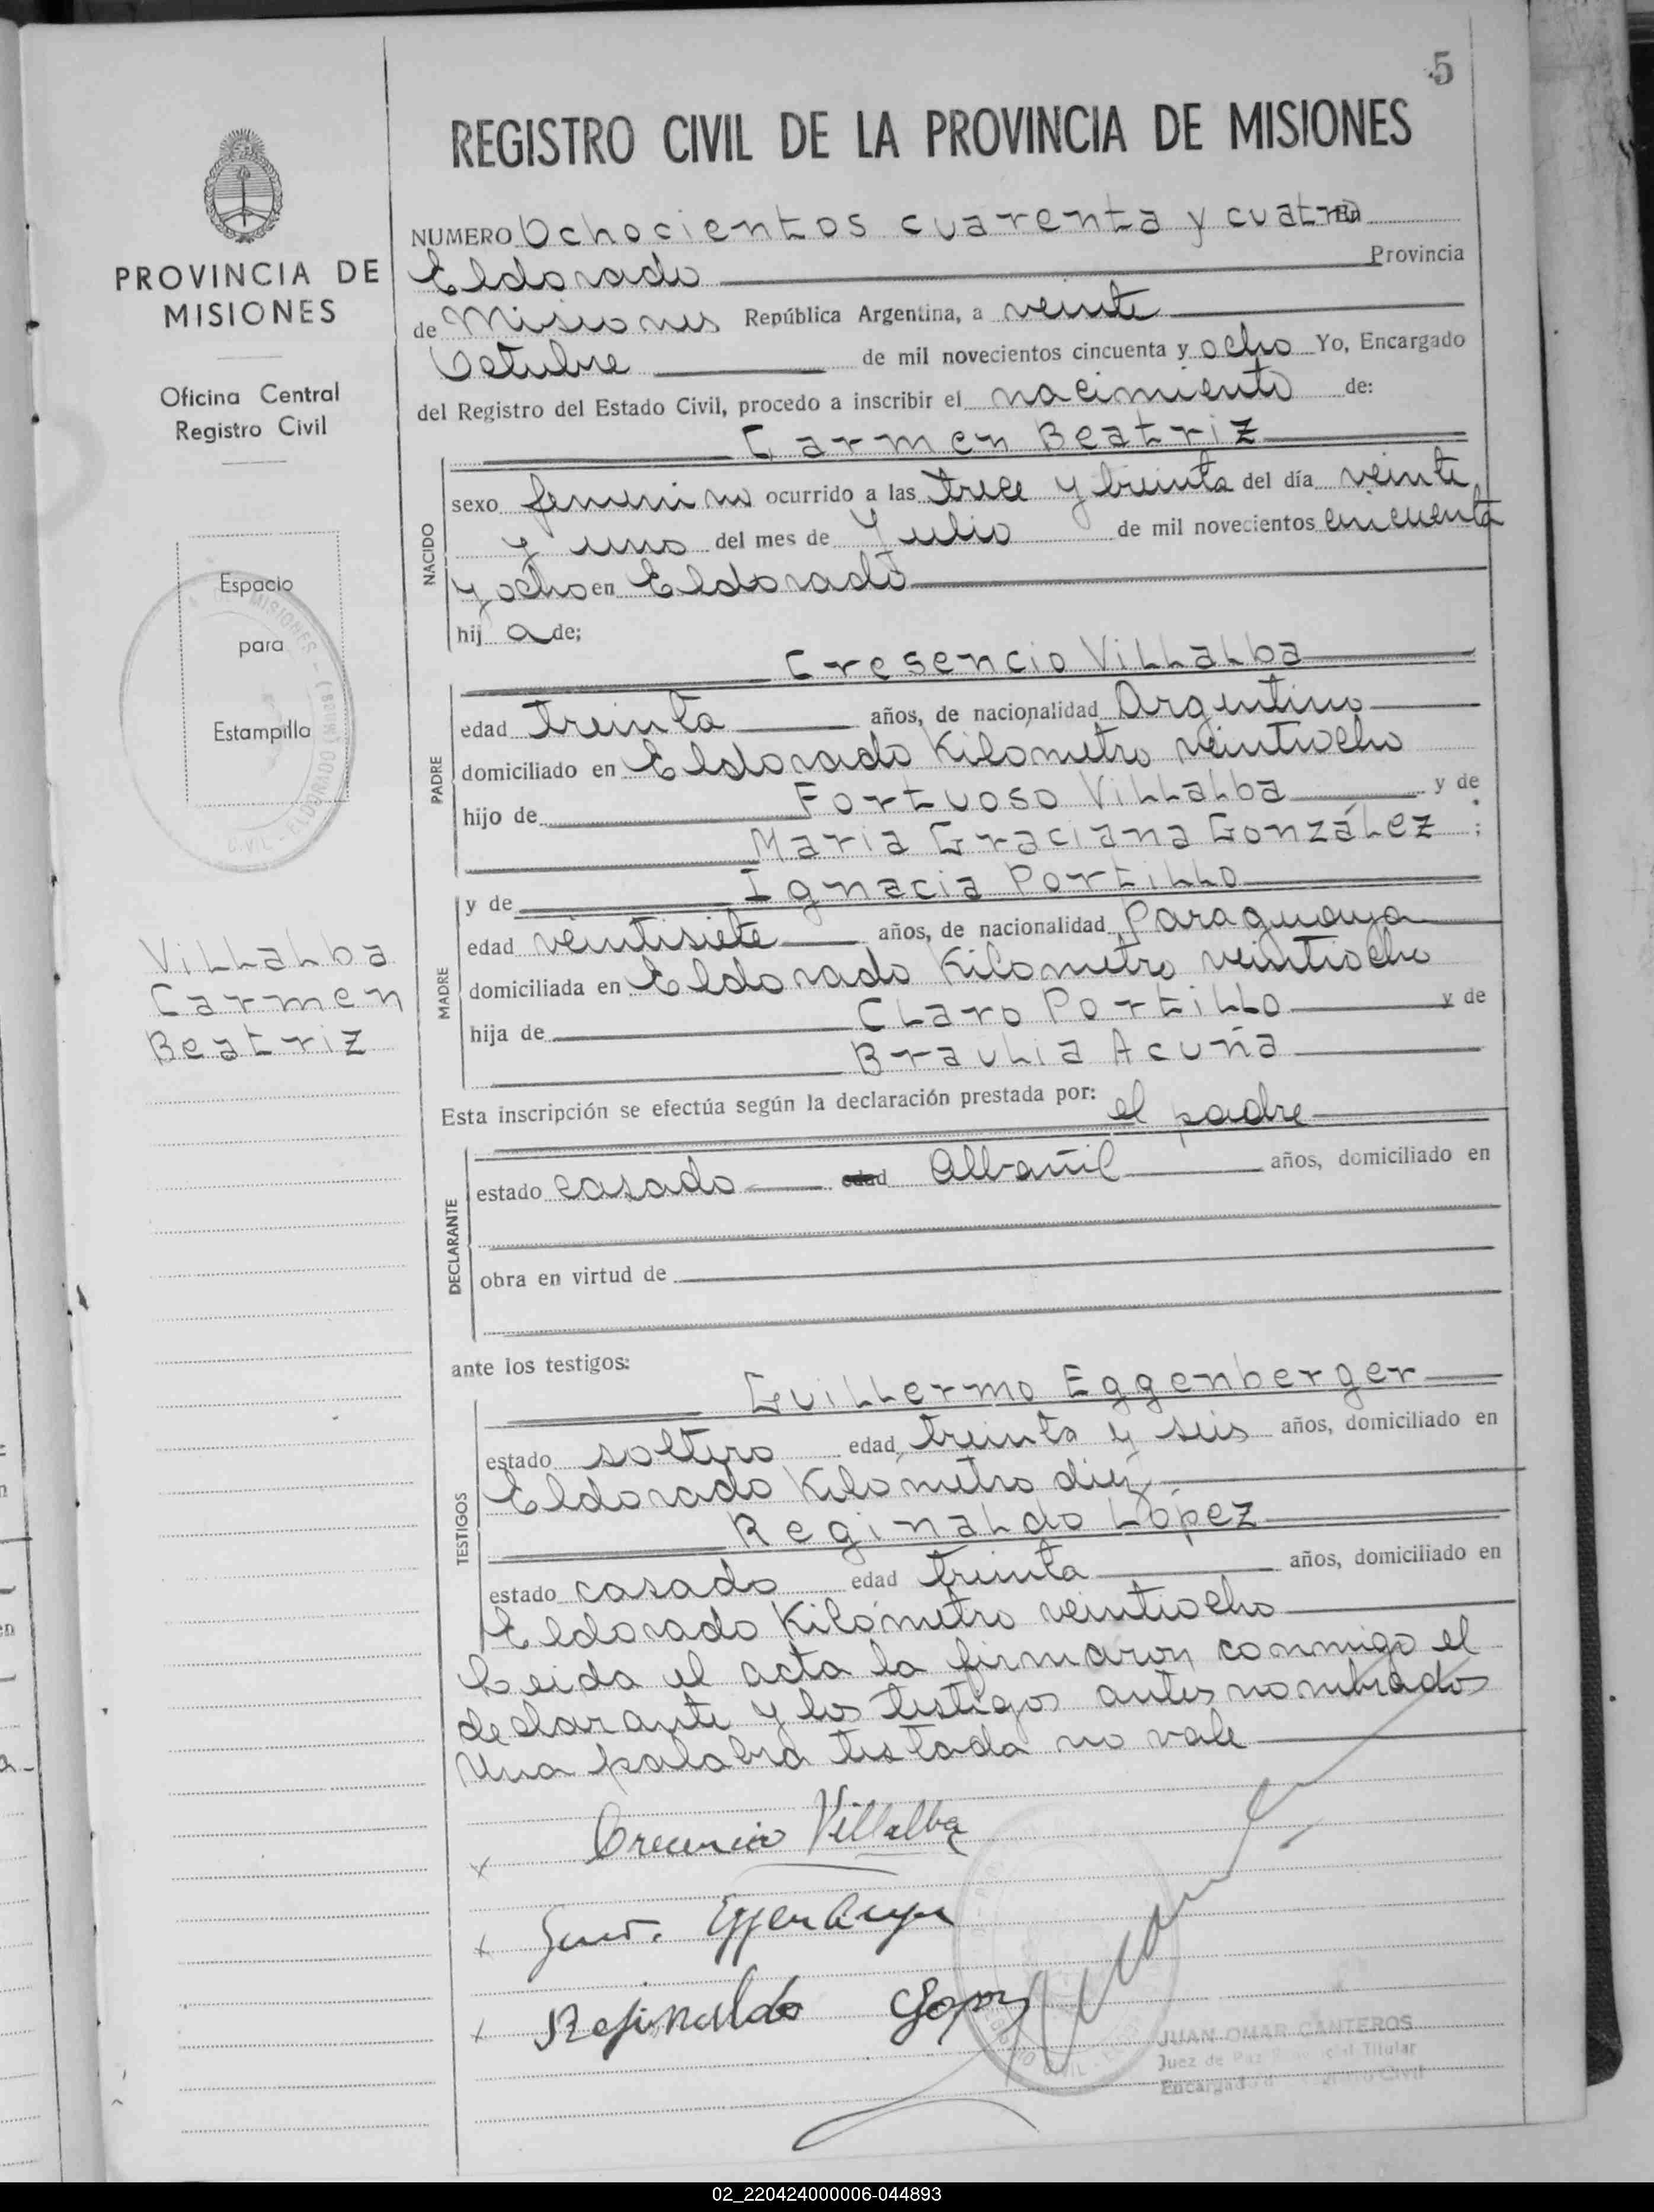 5
REGISTRO CIVIL DE LA PROVINCIA DE MISIONES
PROVINCIA DE
MISIONES
Oficina Central
Registro Civil
Espacio
para
Estampilla
Villalba
Carmen
Beatriz
NUMERO Ochocientos cuarenta y cuatro En
Eldorado Provincia
de Misiones República Argentina, a veinte
Octubre de mil novecientos cincuenta y ocho Yo, Encargado
del Registro del Estado Civil, procedo a inscribir el nacimiento de:
Carmen Beatriz
NACIDO
sexo femenino ocurrido a las trece y treinta del día veinte
y uno del mes de Julio de mil novecientos cincuenta
y ocho en Eldorado
hij a de;
Cresencio Villalba
PADRE
edad treinta años, de nacionalidad Argentino
domiciliado en Eldorado Kilómetro veintiocho
hijo de Fortuoso Villalba y de
Maria Graciana González ;
y de Ignacia Portillo
MADRE
edad veintisiete años, de nacionalidad Paraguaya
domiciliada en Eldorado Kilometro veintiocho
hija de Claro Portillo y de
Braulia Acuña
Esta inscripción se efectúa según la declaración prestada por: el padre
DECLARANTE
estado casado edad Albañil años, domiciliado en
obra en virtud de
ante los testigos:
Guillermo Eggenberger
TESTIGOS
estado soltero edad treinta y seis años, domiciliado en
Eldorado Kilómetro diez
Reginaldo López
estado casado edad treinta años, domiciliado en
Eldorado Kilómetro veintiocho
Leida el acta la firmaron conmigo el
declarante y los testigos antes nombrados
Una palabra testada no vale
x Crecencio Villalba
x Eggenberger
x Reginaldo Lopez
JUAN OMAR CANTEROS
Juez de Paz Titular
Encargado Registro Civil
02_220424000006-044893